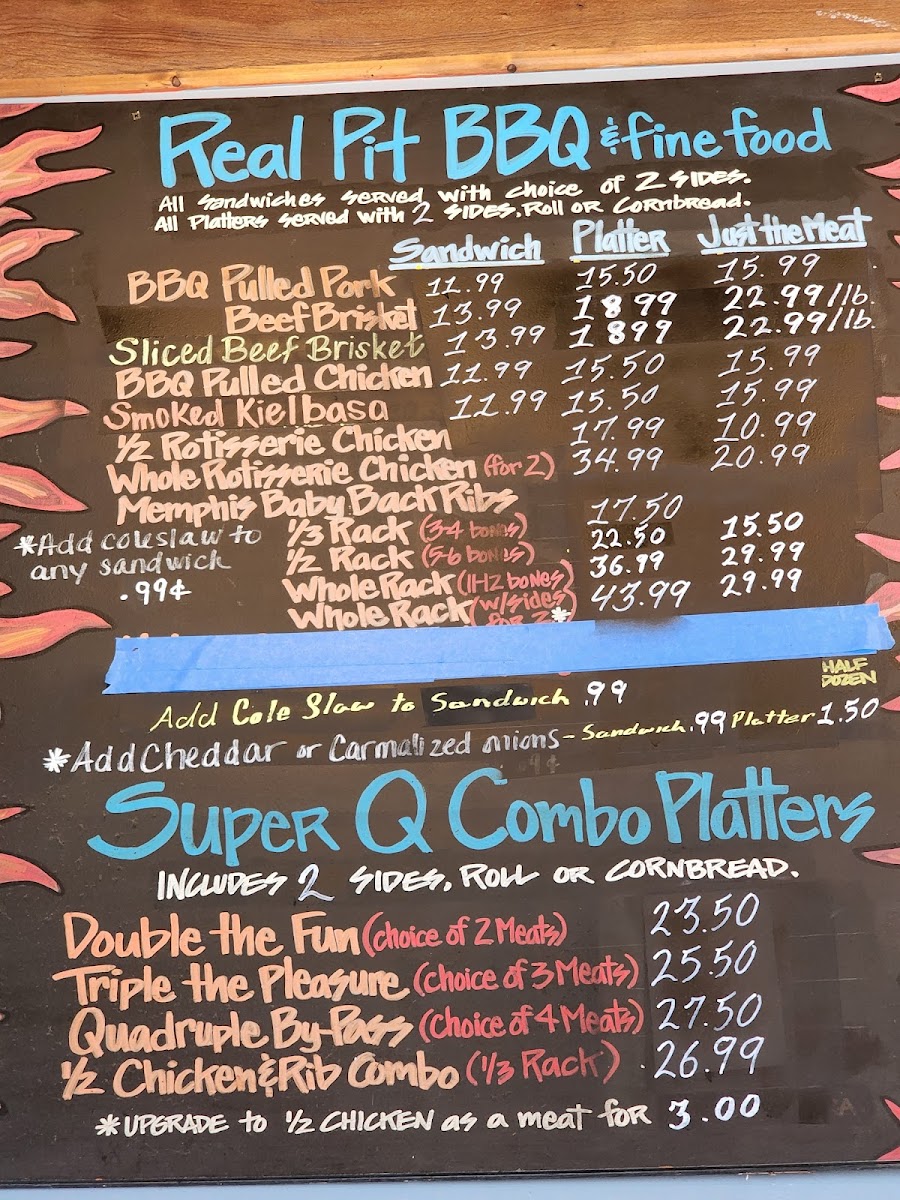 Real Pit BBQ & fine food
All sandwiches served with choice of 2 SIDES.
All Platters served with 2 SIDES, Roll OR Cornbread.
Sandwich Platter Just the Meat
BBQ Pulled Pork 11.99 15.50 15.99
Beef Brisket 13.99 18 99 22.99/lb.
Sliced Beef Brisket 13.99 1899 22.99/lb.
BBQ Pulled Chicken 11.99 15.50 15.99
Smoked Kielbasa 11.99 15.50 15.99
1/2 Rotisserie Chicken 17.99 10.99
Whole Rotisserie Chicken (for 2) 34.99 20.99
Memphis Baby Back Ribs
1/3 Rack (3-4 bones) 17.50
1/2 Rack (5-6 bones) 22.50 15.50
Whole Rack (11-12 bones) 36.99 29.99
Whole Rack (w/sides for 2)* 43.99 29.99
*Add coleslaw to
any sandwich
.99¢
HALF
DOZEN
Add Cole Slaw to Sandwich .99
*Add Cheddar or Carmalized onions - Sandwich .99 Platter 1.50
Super Q Combo Platters
INCLUDES 2 SIDES, ROLL OR CORNBREAD.
Double the Fun (choice of 2 Meats) 23.50
Triple the Pleasure (choice of 3 Meats) 25.50
Quadruple By-Pass (choice of 4 Meats) 27.50
1/2 Chicken & Rib Combo (1/3 Rack) .26.99
*UPGRADE to 1/2 CHICKEN as a meat for 3.00